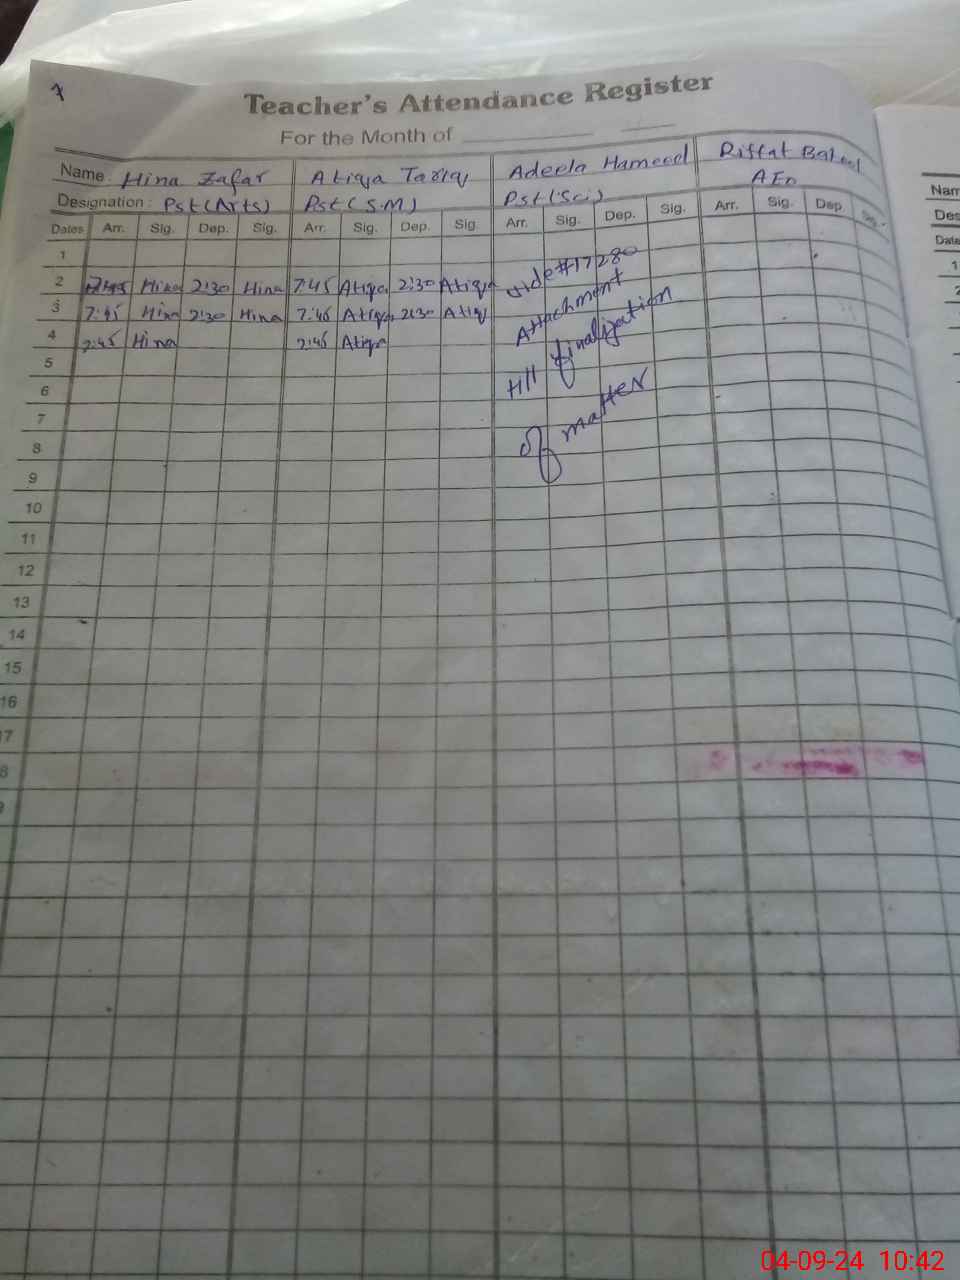 7
Teacher's Attendance Register
For the Month of
Name: Hina Zafar Atiqa Tariq Adeela Hameed Riffat Batool
Designation: Pst (Arts) Pst (S.M) Pst (Sci) AEO
Dates Arr. Sig. Dep. Sig. Arr. Sig. Dep. Sig. Arr. Sig. Dep. Sig. Arr. Sig. Dep. Sig.
1
2 7:45 Hina 2:30 Hina 7:45 Atiqa 2:30 Atiqa
3 7:45 Hina 2:30 Hina 7:45 Atiqa 2:30 Atiq
4 7:45 Hina 7:45 Atiqa
vide #17280
Attachment
till finalization
of matter
5
6
7
8
9
10
11
12
13
14
15
16
7
8
Nam
Des
Date
1
2
04-09-24 10:42